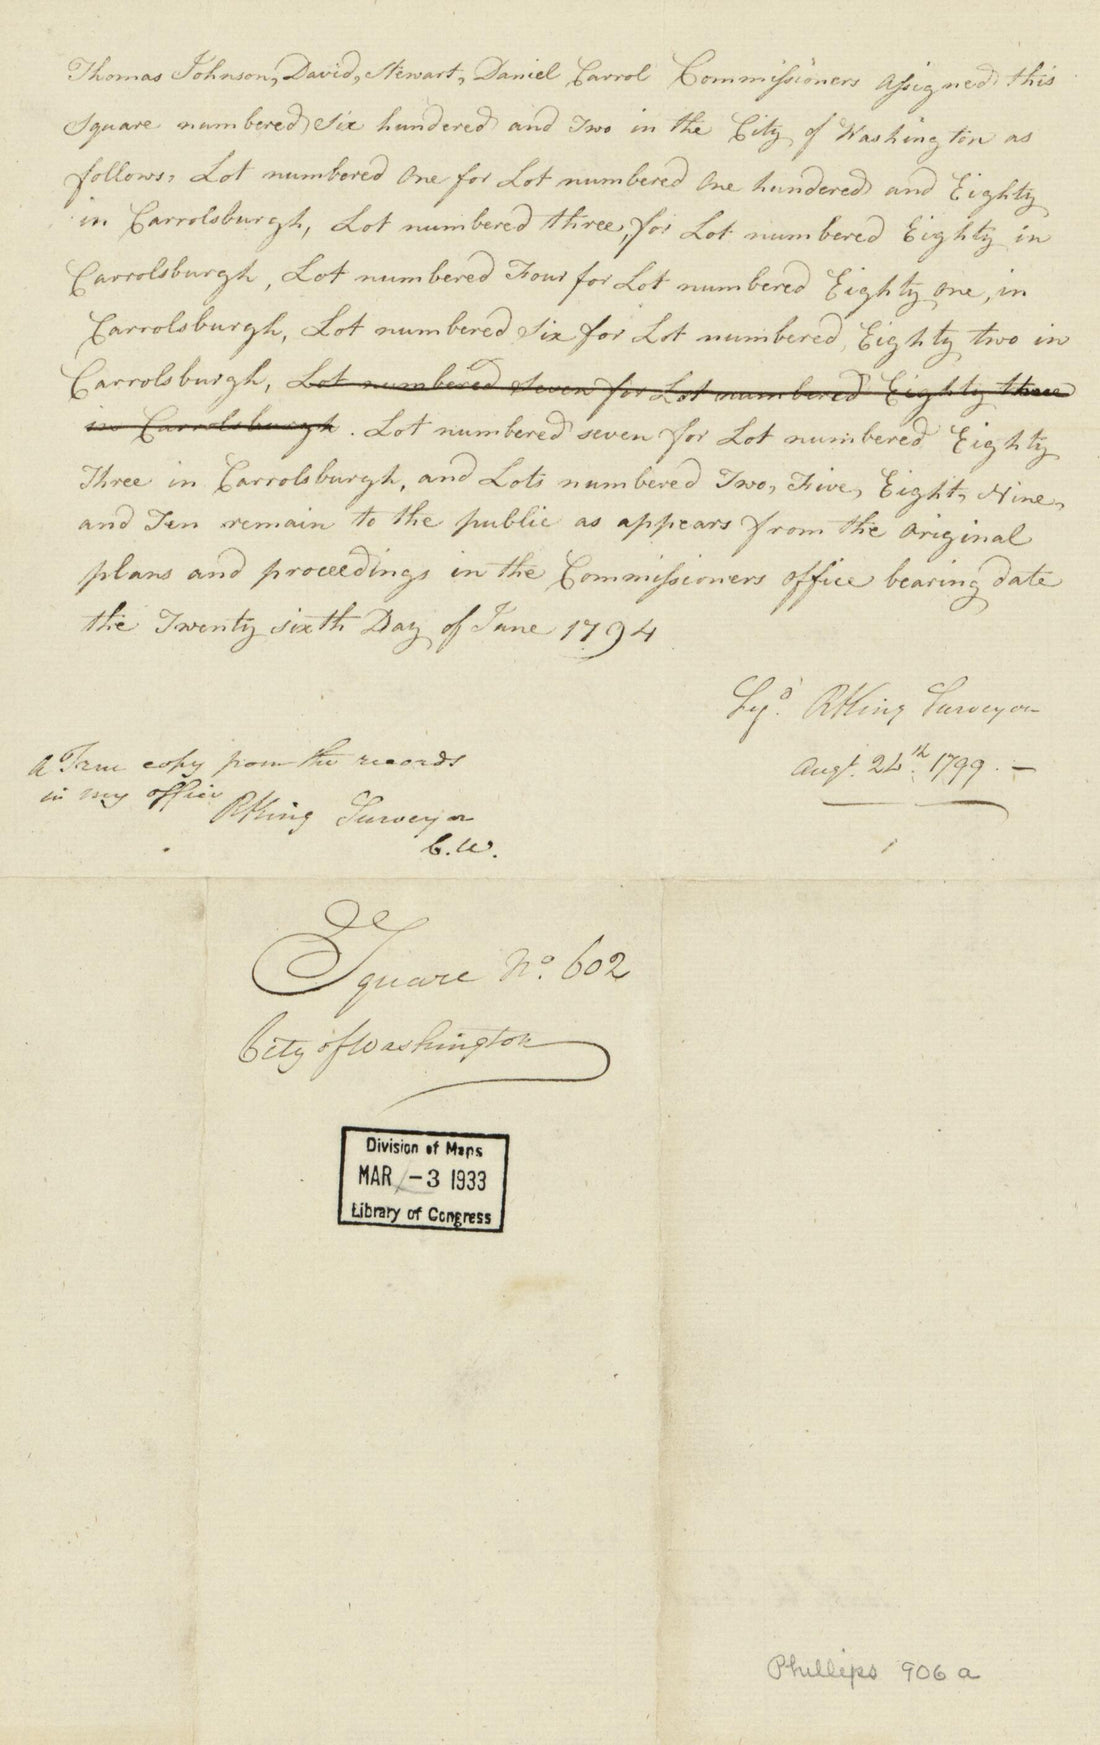 Thomas Johnson, David, Stewart, Daniel Carrol Commissioners Assigned this
Square numbered Six hundered and Two in the City of Washington as
follows, Lot numbered One for Lot numbered One hundered and Eighty
in Carrolsburgh, Lot numbered three, for Lot numbered Eighty in
Carrolsburgh, Lot numbered Four for Lot numbered Eighty One, in
Carrolsburgh, Lot numbered Six for Lot numbered, Eighty two in
Carrolsburgh, Lot numbered Seven for Lot numbered Eighty three
in Carrolsburgh. Lot numbered seven for Lot numbered Eighty
Three in Carrolsburgh, and Lots numbered Two, Five, Eight, Nine,
and Ten remain to the public as appears from the Original
plans and proceedings in the Commissioners office bearing date
the Twenty sixth Day of June 1794
Sgd. RKing Surveyor
Augt. 24th. 1799. —
A True copy from the records
in my office
RKing Surveyor
C.W.
Square No. 602
City of Washington
Division of Maps
MAR -3 1933
Library of Congress
Phillips 906 a